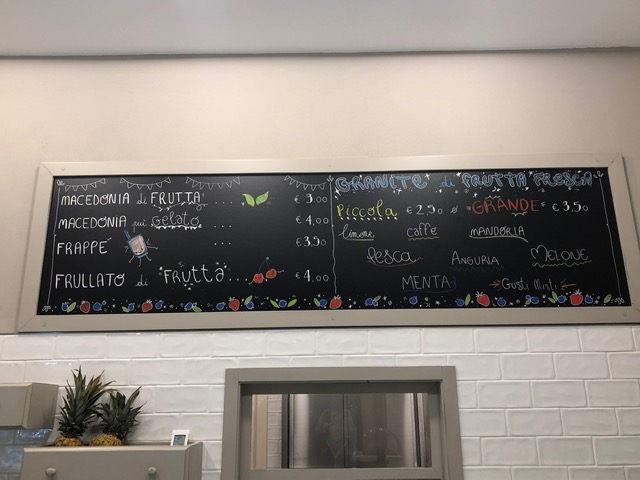 MACEDONIA di FRUTTA .... € 3,00
MACEDONIA sul gelato ... € 4,00
FRAPPE' ... € 3,50
FRULLATO di FRUTTA... € 4,00
GRANITE di FRUTTA FRESCA
Piccola € 2,50 GRANDE € 3,50
limone caffe MANDORLA
Pesca ANGURIA MELONE
MENTA Gusti Misti